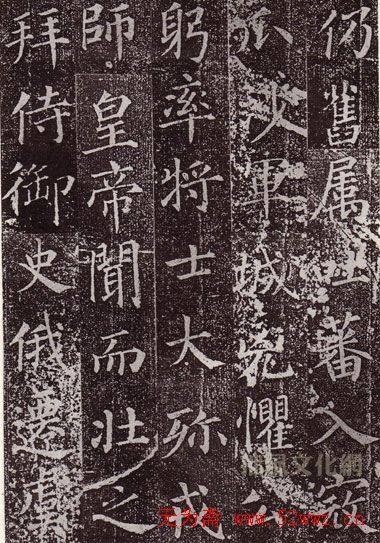 仍舊属吐蕃入寇
軍城兇懼
躬率將士大殄戎
師 皇帝聞而壯之
拜侍御史俄遷虞
文化網
无为斋 www.52wwz.cn